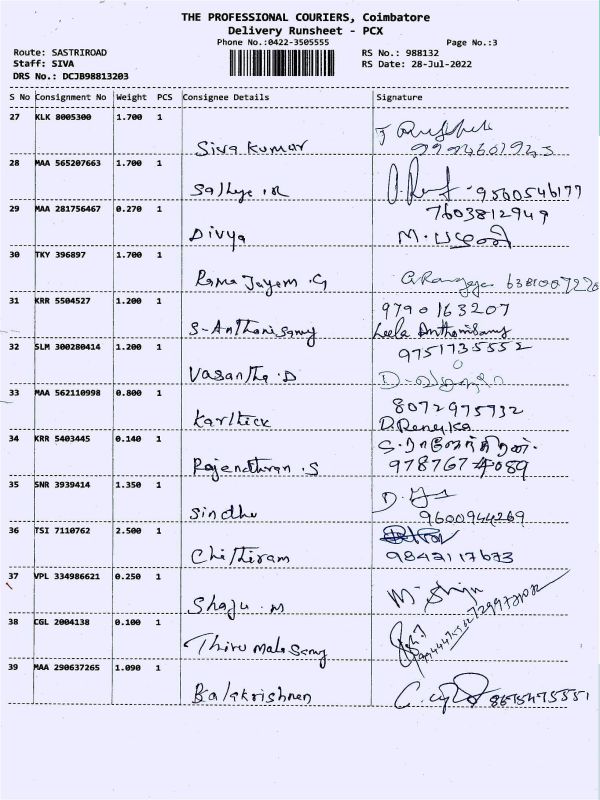 THE PROFESSIONAL COURIERS, Coimbatore
Delivery Runsheet - PCX
Phone No.:0422-3505555
Page No.:3
Route: SASTRIROAD
RS No.: 988132
Staff: SIVA
RS Date: 28-Jul-2022
DRS No.: DCJB98813203
S No Consignment No Weight PCS Consignee Details Signature
27 KLK 8005300 1.700 1
Siva Kumar
28 MAA 565207663 1.700 1
9560546177
29 MAA 281756467 0.270 1
7603812949
Divya M.
30 TKY 396897 1.700 1
Rama Jayam .G
31 KRR 5504527 1.200 1
9790163207
S-Anthonisamy Leela Anthonisamy
32 SLM 300280414 1.200 1
9751735552
Vasantha .D
33 MAA 562110998 0.800 1
8072975932
Karthick D.Renuka
34 KRR 5403445 0.140 1
Rajendhran .S 978767 4089
35 SNR 3939414 1.350 1
Sindhu 9600944269
36 TSI 7110762 2.500 1
Chithiram 9842117673
37 VPL 334986621 0.250 1
Shaju .M M. Shiju
38 CGL 2004138 0.100 1
Thirumalasamy
39 MAA 290637265 1.090 1
Balakrishnan 8675475551